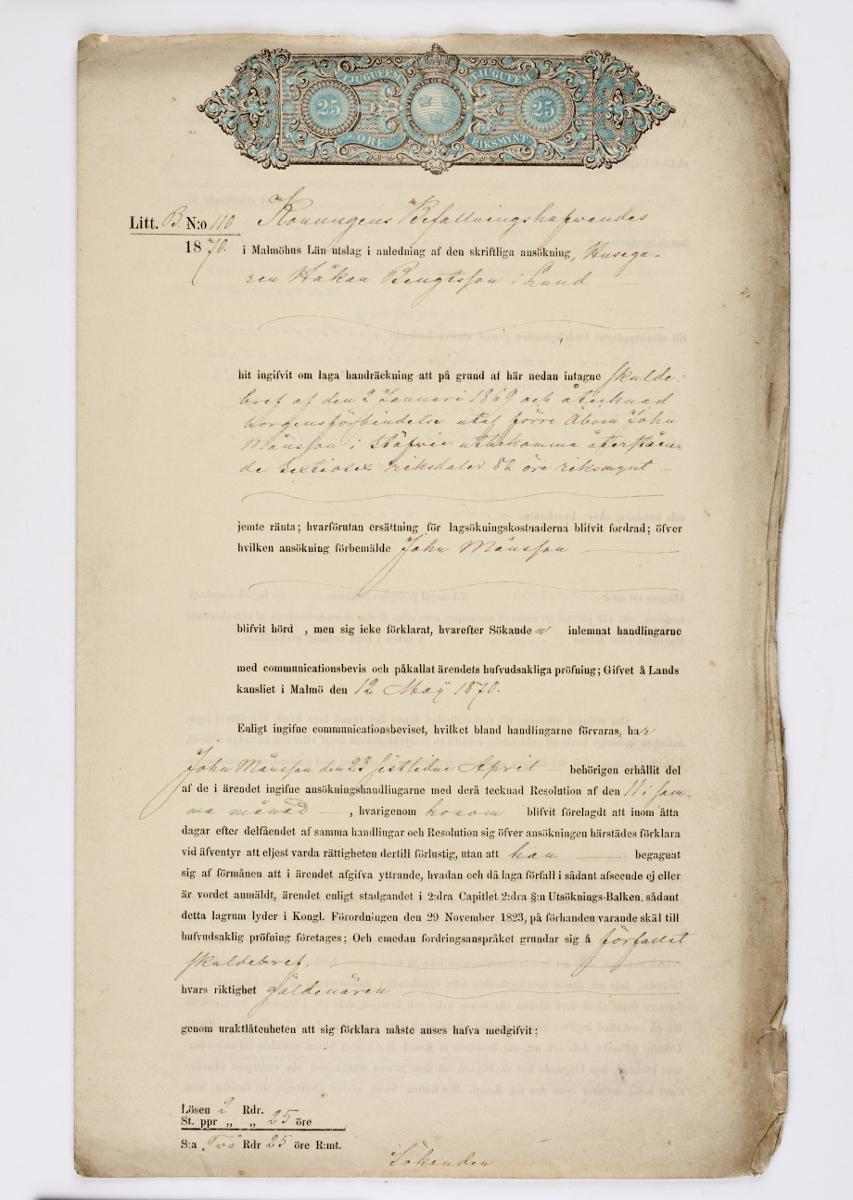 TJUGUFEM TJUGUFEM
25 25
ÖRE RIKSMYNT
Litt. B. N:o 110
1870.
Konungens Befallningshafwandes
i Malmöhus Län utslag i anledning af den skriftliga ansökning, Husega-
ren Håkan Bengtsson i Lund
hit ingifvit om laga handräckning att på grund af här nedan intagne skulde-
bref af den 2 Januari 1869 och åtecknad
borgensförbindelse utaf förre Åboen John
Månsson i Stäfvie utbekomma återståen-
de sextiosex riksdaler 86 öre riksmynt
jemte ränta; hvarförutan ersättning för lagsökningskostnaderna blifvit fordrad; öfver
hvilken ansökning förbemälde John Månsson
blifvit hörd , men sig icke förklarat, hvarefter Sökanden inlemnat handlingarne
med communicationsbevis och påkallat ärendets hufvudsakliga pröfning; Gifvet å Lands
kansliet i Malmö den 12 Maij 1870.
Enligt ingifne communicationsbeviset, hvilket bland handlingarne förvaras, har
John Månsson den 23 sistlidne April behörigen erhållit del
af de i ärendet ingifne ansökningshandlingarne med derå tecknad Resolution af den 11 i sam-
ma månad , hvarigenom honom blifvit förelagdt att inom åtta
dagar efter delfåendet af samma handlingar och Resolution sig öfver ansökningen härstädes förklara
vid äfventyr att eljest varda rättigheten dertill förlustig, utan att han begagnat
sig af förmånen att i ärendet afgifva yttrande, hvadan och då laga förfall i sådant afseende ej eller
är vordet anmäldt, ärendet enligt stadgandet i 2:dra Capitlet 2:dra §:n Utsöknings-Balken, sådant
detta lagrum lyder i Kongl. Förordningen den 29 November 1823, på förhanden varande skäl till
hufvudsaklig pröfning företages; Och emedan fordringsanspråket grundar sig å förfallet
skuldebref,
hvars riktighet gäldenären
genom uraktlåtenheten att sig förklara måste anses hafva medgifvit;
Lösen 2 Rdr.
St. ppr „ „ 25 öre
S:a Två Rdr 25 öre R:mt.
Sökanden